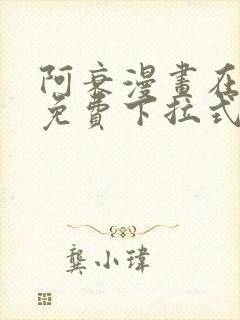 阿衰漫畫在
免費下拉式
龔小瑋